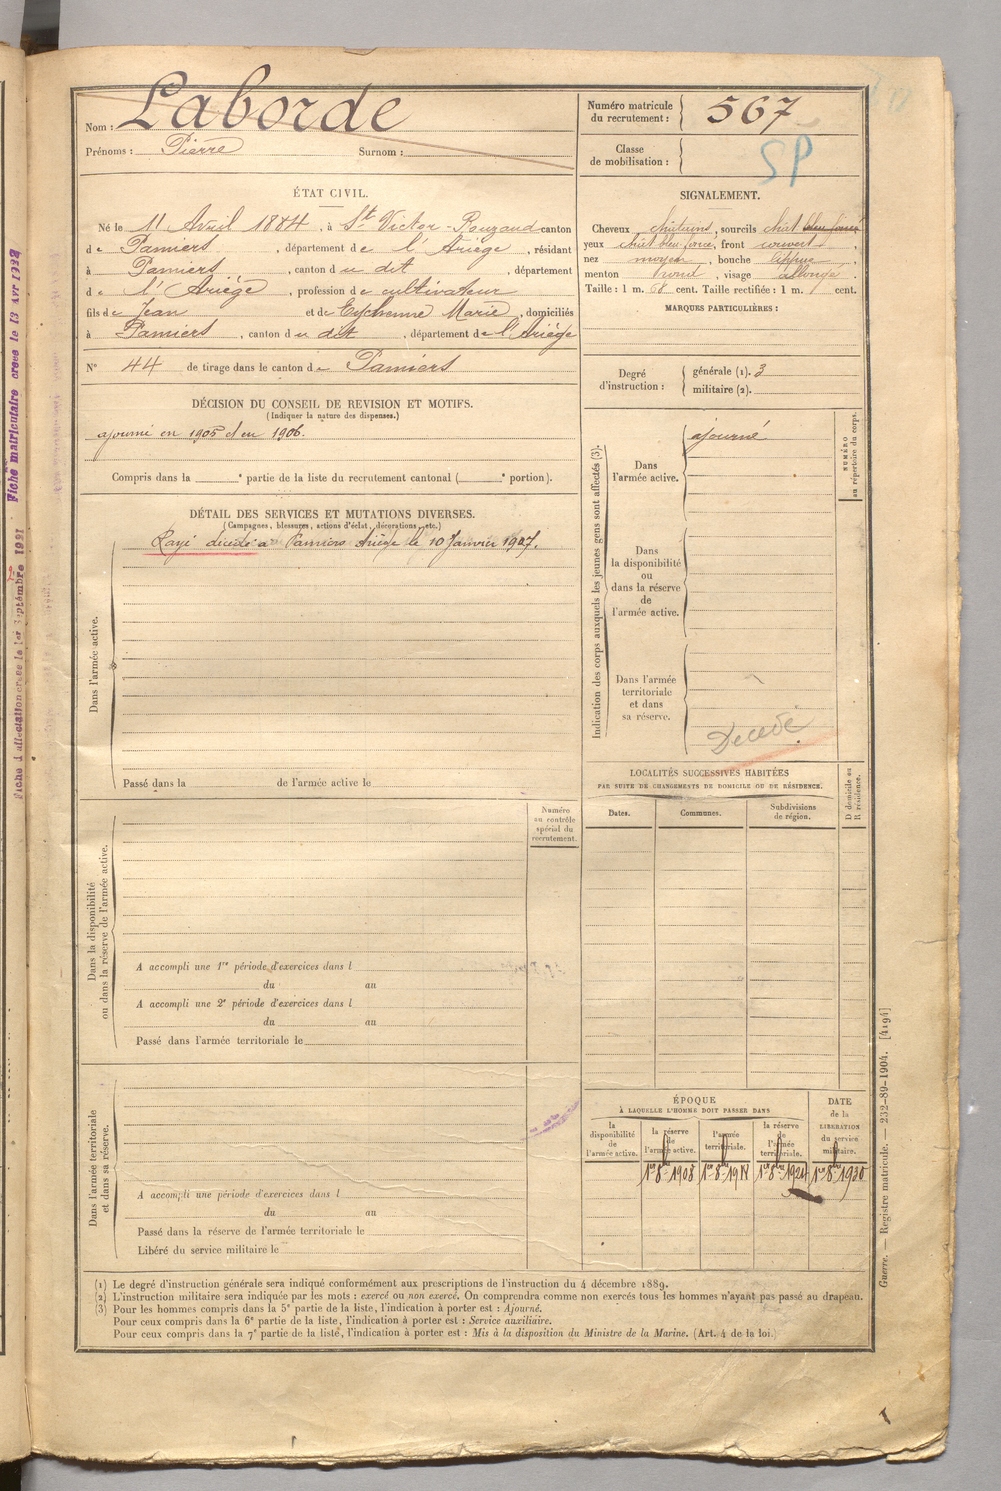 Nom : Laborde
Prénoms : Pierre Surnom :
Numéro matricule du recrutement : 567
Classe de mobilisation :
SP
ÉTAT CIVIL.
Né le 11 Avril 1884, à St Victor-Rouzaud canton
de Pamiers, département de l'Ariège, résidant
à Pamiers, canton du dit, département
de l'Ariège, profession de cultivateur
fils de Jean et de Eychenne Marie, domiciliés
à Pamiers, canton du dit, département de l'Ariège
N° 44 de tirage dans le canton de Pamiers
SIGNALEMENT.
Cheveux châtains, sourcils chat bleu foncé
yeux chat bleu foncé, front couvert,
nez moyen, bouche lippue,
menton rond, visage allongé.
Taille : 1 m. 68 cent. Taille rectifiée : 1 m. cent.
MARQUES PARTICULIÈRES :
Degré d'instruction : générale (1). 3
militaire (2).
DÉCISION DU CONSEIL DE REVISION ET MOTIFS.
(Indiquer la nature des dispenses.)
ajourné en 1905 et en 1906.
Compris dans la e partie de la liste du recrutement cantonal ( e portion).
DÉTAIL DES SERVICES ET MUTATIONS DIVERSES.
(Campagnes, blessures, actions d'éclat, décorations, etc.)
Rayé décédé à Pamiers Ariège le 10 Janvier 1907.
Dans l'armée active.
Passé dans la de l'armée active le
Indication des corps auxquels les jeunes gens sont affectés (3).
NUMÉRO
au répertoire du corps.
Dans
l'armée active.
ajourné
Dans
la disponibilité
ou
dans la réserve
de
l'armée active.
Dans l'armée
territoriale
et dans
sa réserve.
Décédé
LOCALITÉS SUCCESSIVES HABITÉES
PAR SUITE DE CHANGEMENTS DE DOMICILE OU DE RÉSIDENCE.
D domicile ou
R résidence.
Dates. Communes. Subdivisions de région.
Numéro
au contrôle
spécial du
recrutement.
Dans la disponibilité
ou dans la réserve de l'armée active.
A accompli une 1re période d'exercices dans l
du au
A accompli une 2e période d'exercices dans l
du au
Passé dans l'armée territoriale le
Dans l'armée territoriale
et dans sa réserve.
A accompli une période d'exercices dans l
du au
Passé dans la réserve de l'armée territoriale le
Libéré du service militaire le
ÉPOQUE
À LAQUELLE L'HOMME DOIT PASSER DANS
la
disponibilité
de
l'armée active.
la réserve
de
l'armée active.
l'armée
territoriale.
la réserve
de
l'armée
territoriale.
DATE
de la
LIBÉRATION
du service
militaire.
(1) Le degré d'instruction générale sera indiqué conformément aux prescriptions de l'instruction du 4 décembre 1889.
(2) L'instruction militaire sera indiquée par les mots : exercé ou non exercé. On comprendra comme non exercés tous les hommes n'ayant pas passé au drapeau.
(3) Pour les hommes compris dans la 5e partie de la liste, l'indication à porter est : Ajourné.
Pour ceux compris dans la 6e partie de la liste, l'indication à porter est : Service auxiliaire.
Pour ceux compris dans la 7e partie de la liste, l'indication à porter est : Mis à la disposition du Ministre de la Marine. (Art. 4 de la loi.)
Guerre. — Registre matricule. — 232-89-1904. [4194]
Fiche matriculaire créée le 13 Avr
Fiche d'affectation créée le 1er Septembre 1921